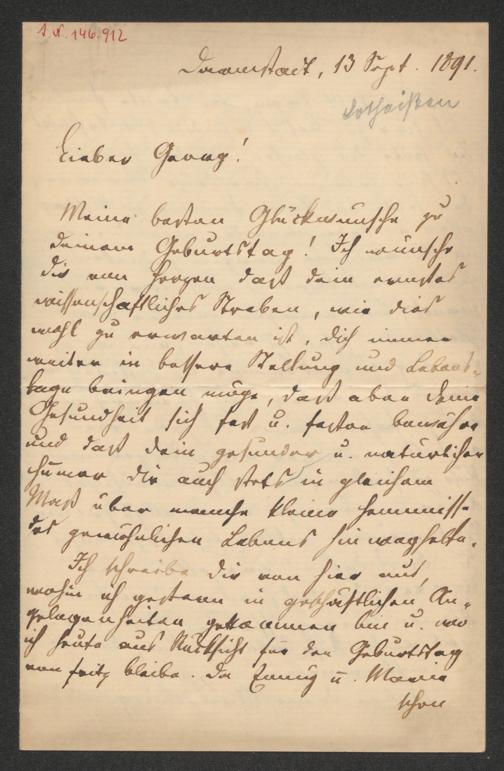 I. N. 146.912
Darmstadt, 13 Sept. 1891.
Lieber Georg!
Meine besten Glückwünsche zu
Deinem Geburtstag! Ich wünsche
Dir von Herzen daß dein ernstes
wissenschaftliches Streben, wie dies
wohl zu erwarten ist, dich immer
weiter in bessere Stellung und Lebens-
lage bringen möge, daß aber deine
Gesundheit sich fest u. fester bewähre
und daß dein gesunder u. natürlicher
Humor dir auch stets in gleichem
Maß über manche kleine Hemmnisse
des gewöhnlichen Lebens hinweghelfe.
Ich schreibe dir von hier aus,
wohin ich gestern in geschäftlichen An-
gelegenheiten gekommen bin u. wo
ich heute aus Rücksicht für den Geburtstag
von Fritz bleibe. Da u. Marie
schon